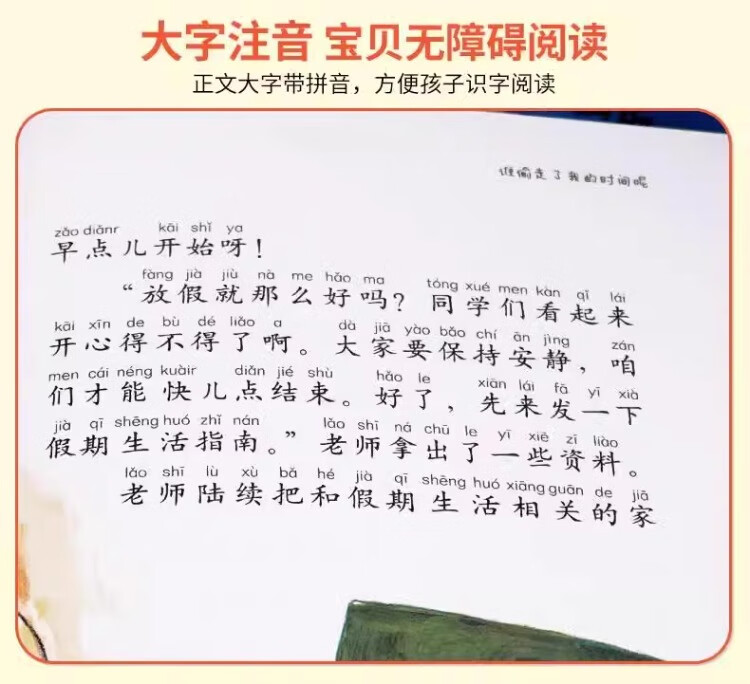 大字注音 宝贝无障碍阅读
正文大字带拼音，方便孩子识字阅读
谁偷走了我的时间呢
zǎo diǎnr kāi shǐ ya
早点儿开始呀！
fàng jià jiù nà me hǎo ma tóng xué men kàn qǐ lái
“放假就那么好吗？同学们看起来
kāi xīn de bù dé liǎo a dà jiā yào bǎo chí ān jìng zán
开心得不得了啊。大家要保持安静，咱
men cái néng kuàir diǎn jié shù hǎo le xiān lái fā yī xià
们才能快儿点结束。好了，先来发一下
jià qī shēng huó zhǐ nán lǎo shī ná chū le yī xiē zī liào
假期生活指南。”老师拿出了一些资料。
lǎo shī lù xù bǎ hé jià qī shēng huó xiāng guān de jiā
老师陆续把和假期生活相关的家